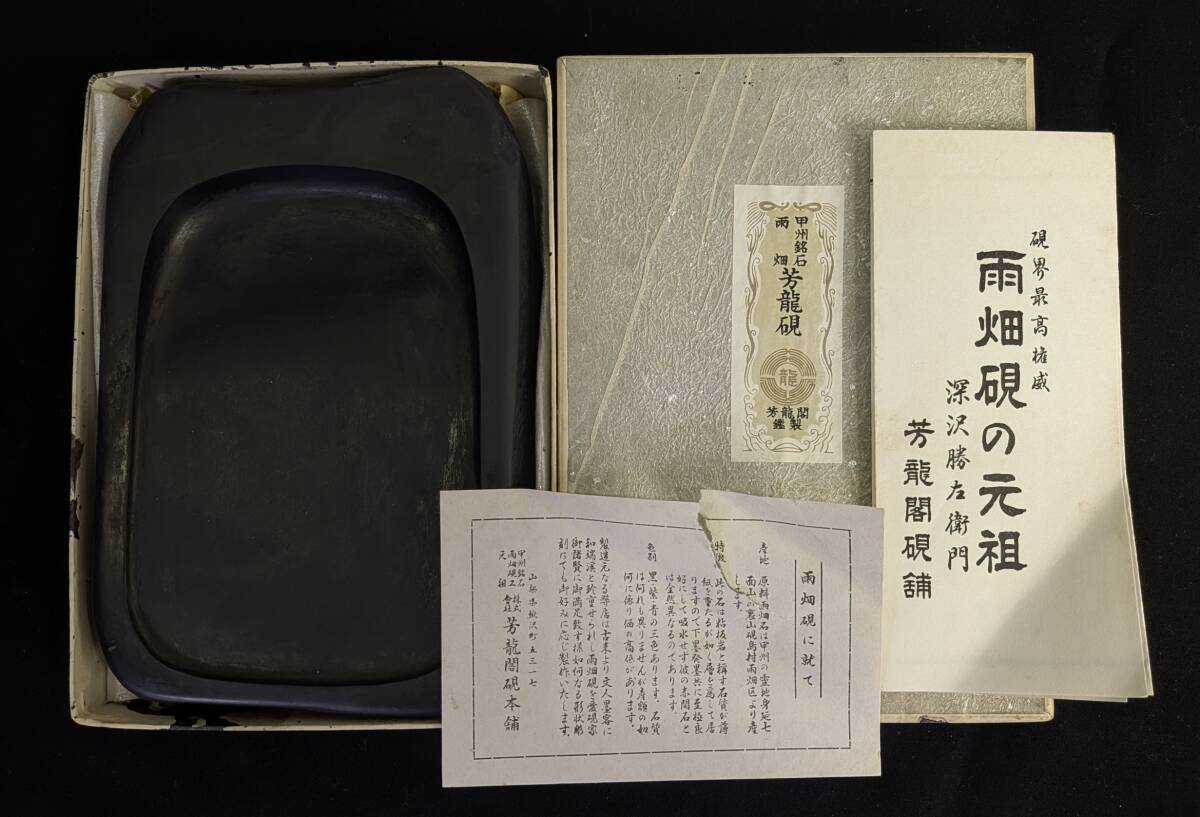 硯界最高権威
雨畑硯の元祖
深沢勝左衛門
芳龍閣硯舗
甲州銘石
雨畑
芳龍硯
龍
芳龍閣
鑑製
雨畑硯に就て
産地
原料雨畑石は甲州の霊地身延七
面山の裏山硯島村雨畑区より産
します。
特徴
此の石は粘板岩と稱す石質が薄
紙を重たるが如く層を為して居
りますので下墨発墨共に至極良
好にして吸水せず彼の赤間石と
は全然異なるのであります
色別
黒・紫・青の三色あります。石質
は何れも異りませんが産額の如
何に依り価の高係があります。
製造元なる弊店は古来より文人墨客に
和端渓と珍重せられし雨畑硯を愛硯家
御諸賢に御満足致す様如何なる形状彫
刻にても御好みに応じ製作いたします。
山梨県鰍沢町五三一七
甲州銘石
雨畑硯工
元祖
株式
會社
芳龍閣硯本舗